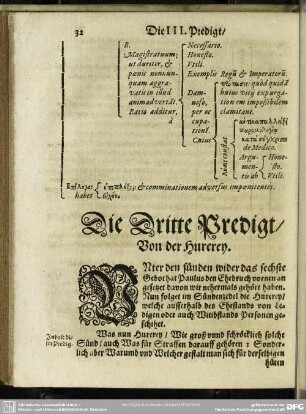 32 Die III. Predigt/
8.
Magistratuum,
ut duriter, &
panis nonnun-
quam aggra-
vatis in hund
animadvertāt.
Ratio additur,
à
Necessario.
Honesto.
Vtili.
Exemplis Regū & Imperatorū.
Dam-
noso,
per oc
cupa-
tionē.
Cuius
quòd quidā
huius vitij expurga-
tion em impoßibilem
clamitant.
de Medico.
Argu-
mento
tu ab
Hone-
sto.
Vtili.
Επίλογος
habet
& comminationem adversus impœnitentes.
Die Dritte Predigt/
Von der Hurerey.
VNter den sünden wider das sechste
Gebot hat Paulus den Ehebruch vornen an
gesetzet davon wir nehermals gehört haben.
Nun folget im Sündenzetel die Hurerey/
welche ausserhalb des Ehestands von Le-
digen oder auch Wittstands Personen ge-
schihet.
Inhalt die
ser Predig.
Was nun Hurerey/ Wie groß vnnd schröcklich solche
Sünd/ auch Was für Straffen darauff gehören: Sonder-
lich aber Warumb vnd Welcher gestalt man sich für derselbigen
hüten